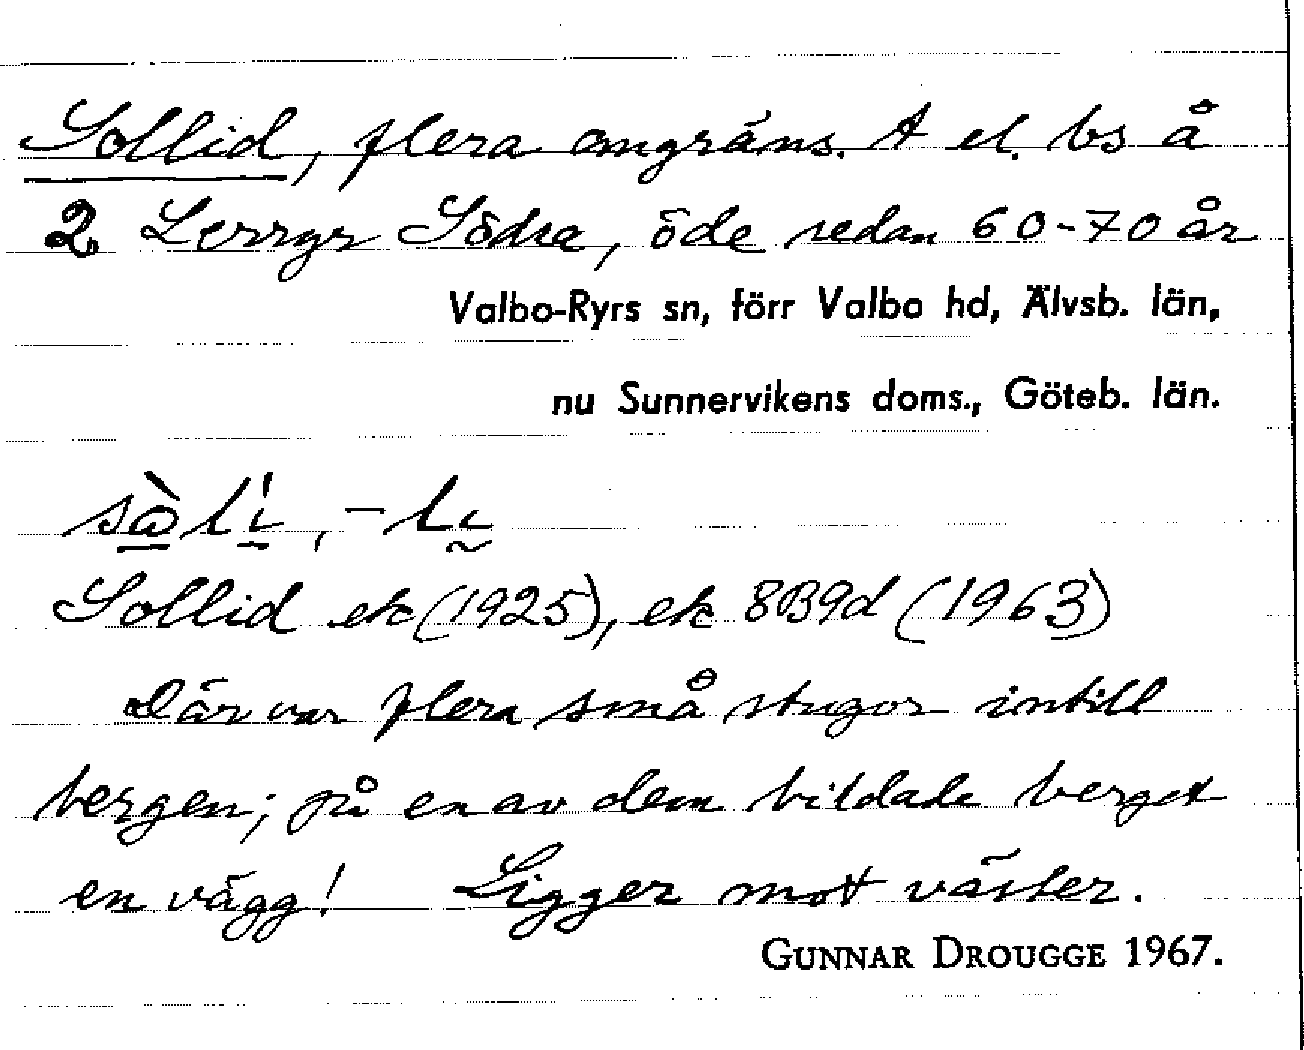 Sollid, flera angräns. t el. bs å
2 Lerryr Södra, öde sedan 60-70 år
Valbo-Ryrs sn, förr Valbo hd, Älvsb. län,
nu Sunnervikens doms., Göteb. län.
Sollid ek (1925), ek 8B9d (1963)
Där var flera små stugor intill
bergen; på en av dem bildade berget
en vägg! Ligger mot väster.
GUNNAR DROUGGE 1967.